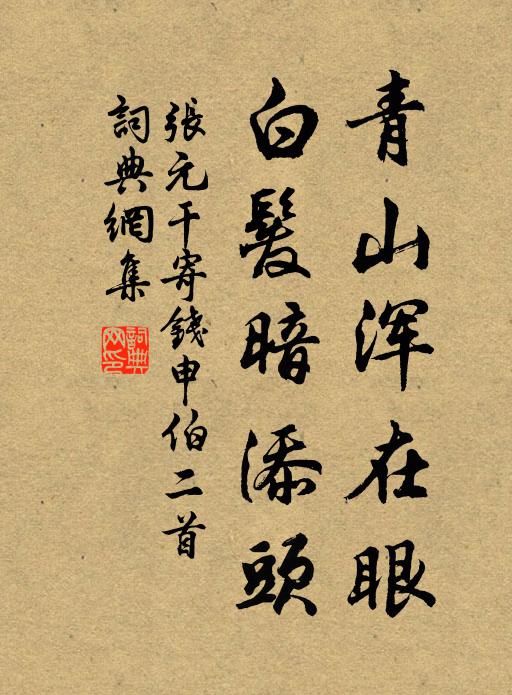 青山浑在眼
白髮暗添頭
張元干寄錢申伯二首
詞典網集
詞典网印